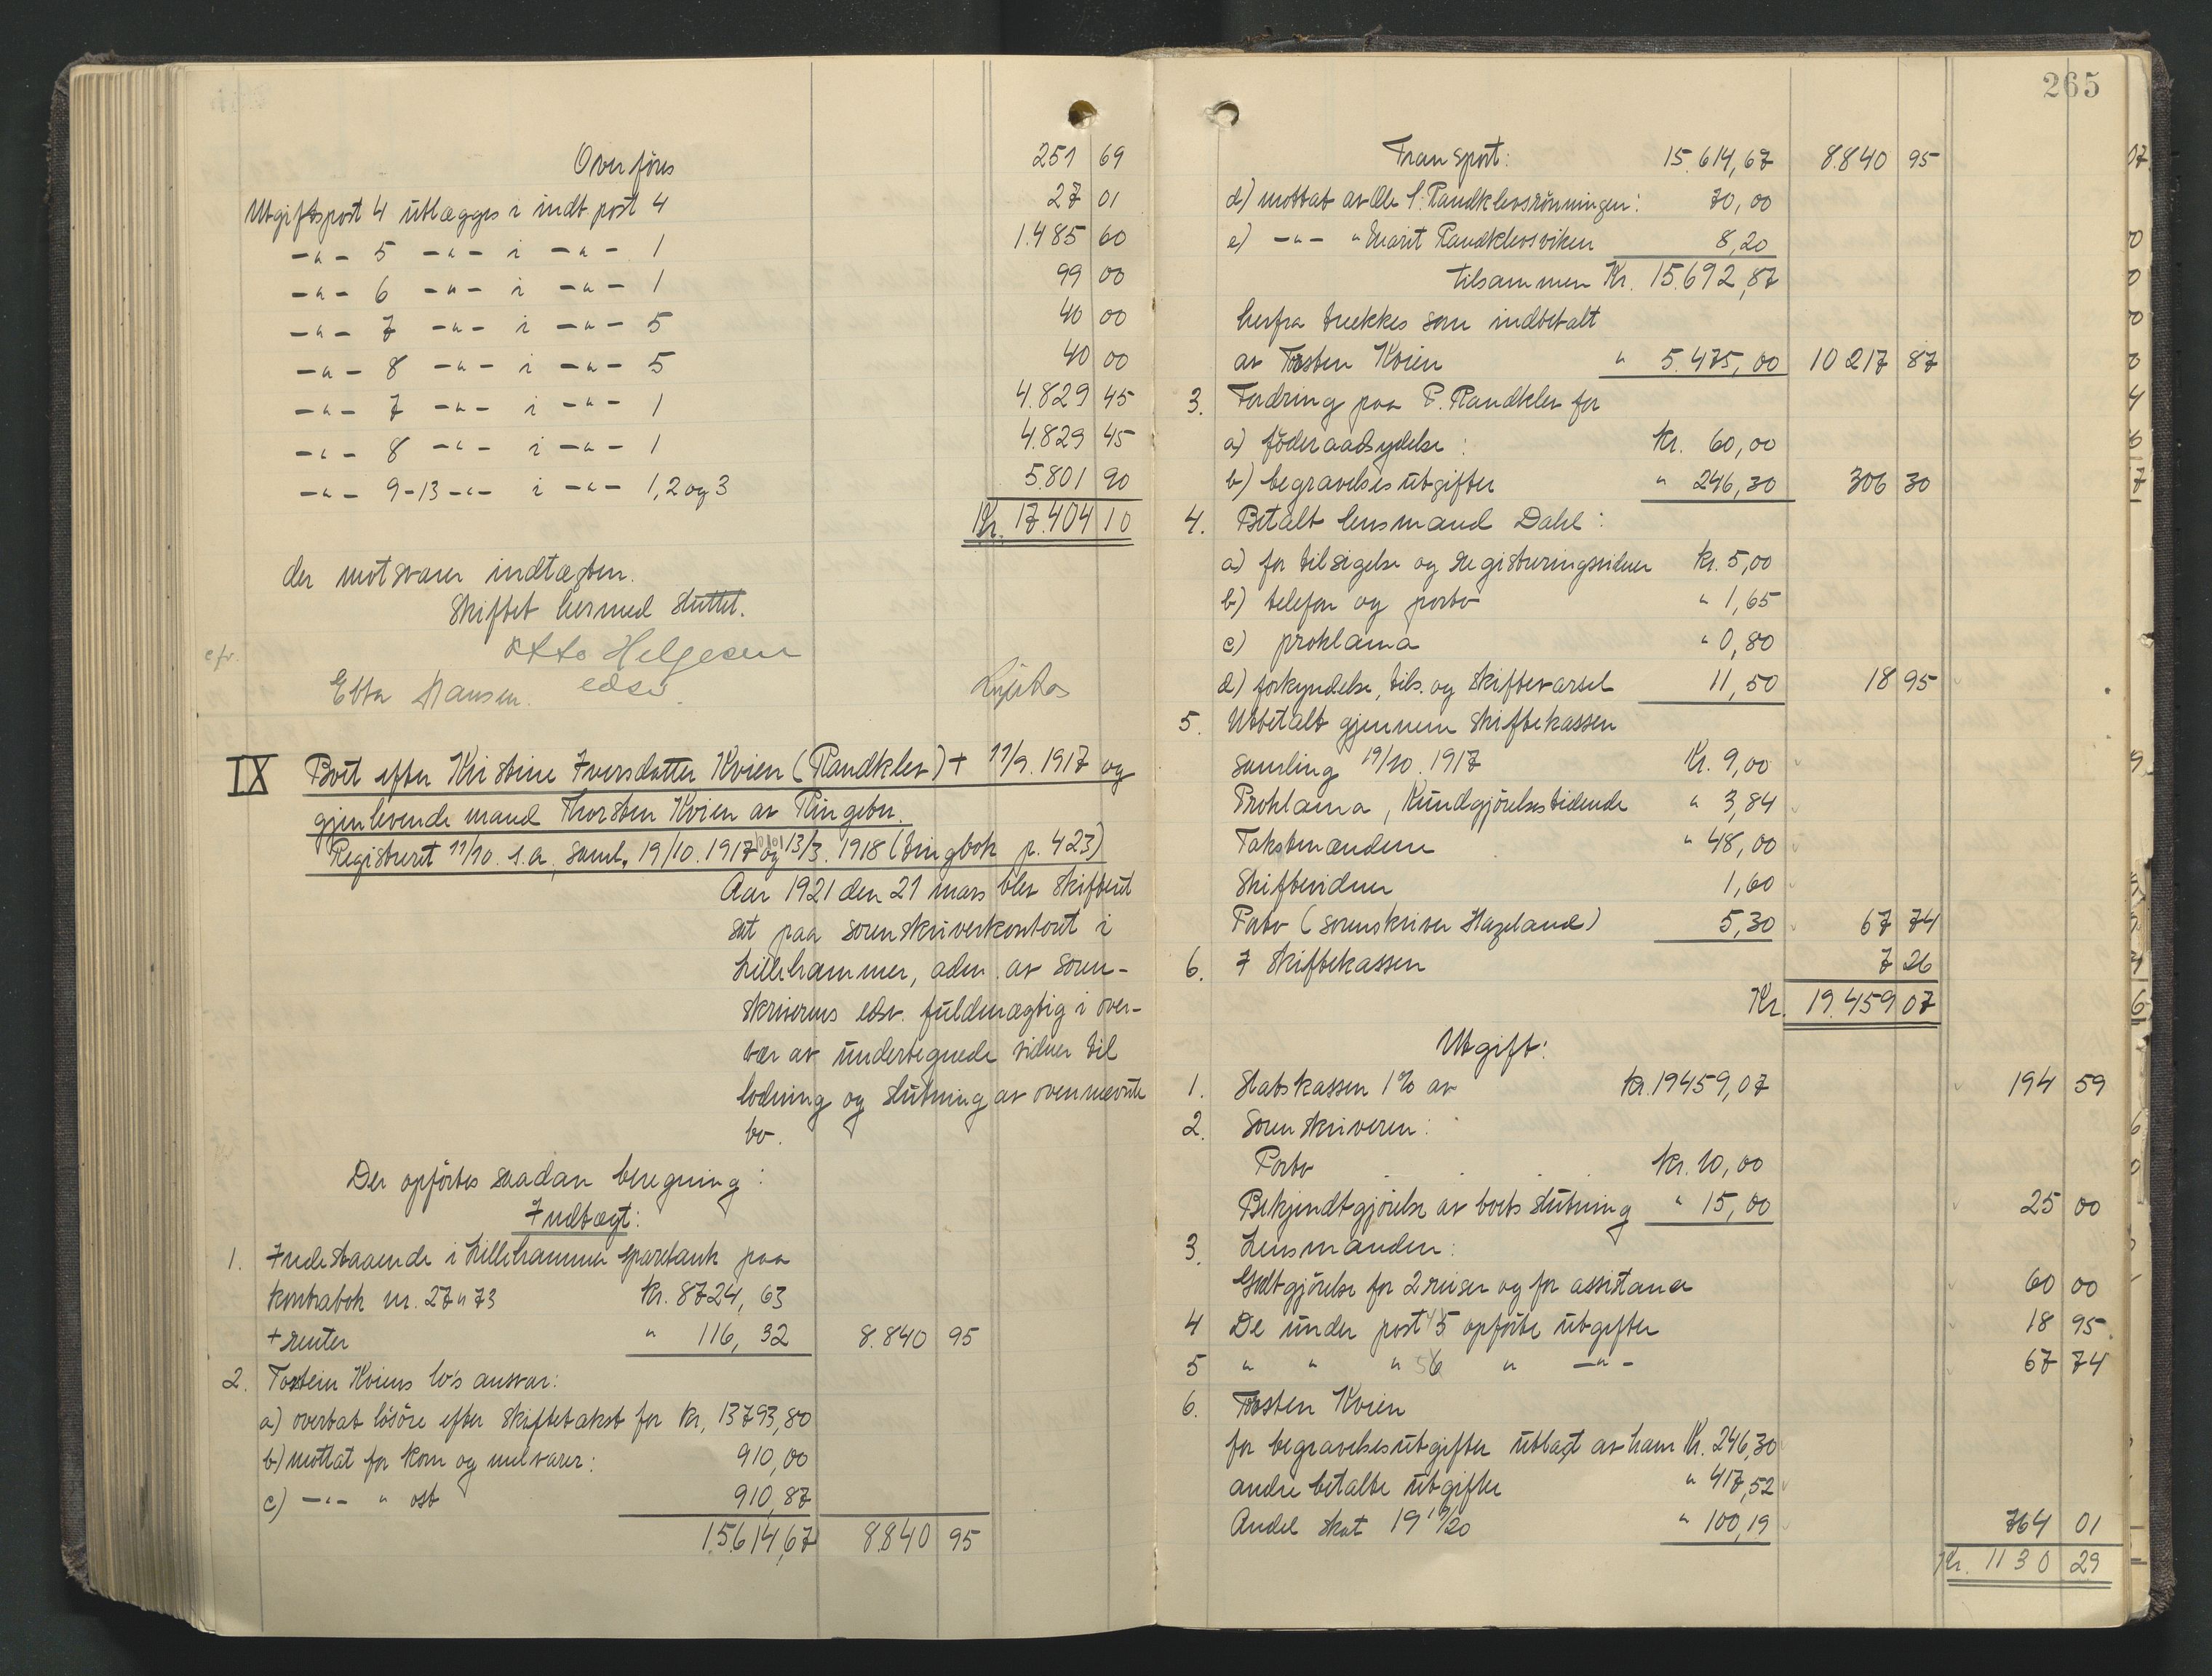 Overføres 251 69
Utgiftspost 4 utlægges i indt post 4 27 01
-"- 5 -"- i -"- 1 1.485 60
-"- 6 -"- i -"- 1 99 00
-"- 7 -"- i -"- 5 40 00
-"- 8 -"- i -"- 5 40 00
-"- 7 -"- i -"- 1 4.829 45
-"- 8 -"- i -"- 1 4.829 45
-"- 9-13 -"- i -"- 1,2 og 3 5.801 90
Kr. 17.404 10
der motsvarer indtægten.
Skiftet hermed sluttet.
Otto Helgesen
cfr.
Ebba Hansen. edsv.
IX Boet efter Kristine Iversdatter Kvien (Randklev) + 11/9. 1917 og
gjenlevende mand Thorsten Kvien av Ringebu.
Registreret 11/10. s.a., saml. 19/10. 1917 og 13/3. 1918 (tingbok p. 423)
Aar 1921 den 21 mars blev skifteret
sat paa sorenskriverkontoret i
Lillehammer, adm. av soren-
skriverens edsv. fuldmægtig i over-
vær av undertegnede vidner til
lodning og slutning av ovennævnte
bo.
Der opførtes saadan beregning:
Indtægt:
1. Indestaaende i Lillehammer sparebank paa
kontrabok nr. 27"73 kr. 8724,63
+ renter " 116,32 8.840 95
2. Torstein Kviens lo's ansvar:
a) overtat løsøre efter skiftetakst for kr. 13793,80
b) mottat for korn og melvarer: 910,00
c) -"- " ost 910,87
15.614,67 8840 95
265
Transport: 15.614,67 8.840 95
d) mottat av Ole P. Randklevsrønningen: 70,00
e) -"- " Marit Randklevsviken 8,20
tilsammen Kr. 15.692,87
herfra trækkes som indbetalt
av Torsten Kvien " 5.475,00 10217 87
3. Fordring paa P. Randklev for
a) føderaadsydelse: kr. 60,00
b) begravelsesutgifter " 246,30 306 30
4. Betalt lensmand Dahl:
a) for tilsigelse og registreringsvidner kr. 5,00
b) telefon og porto " 1,65
c) proklama " 0,80
d) forkyndelse, tils. og skiftevarsel 11,50 18 95
5. Utbetalt gjennem skiftekassen
samling 19/10. 1917 Kr. 9,00
Proklama, Kundgjørelsestidende " 3,84
Takstmændene " 48,00
Skiftevidner 1,60
Porto (sorenskriver Hageland) 5,30 67 74
6. I skiftekassen 7 26
Kr. 19.459 07
Utgift:
1. Statskassen 1% av kr. 19459,07 194 59
2. Sorenskriveren:
Porto kr. 10,00
Bekjendtgjørelse av boets slutning " 15,00 25 00
3. Lensmanden:
Godtgjørelse for 2 reiser og for assistance 60 00
4 De under post 4 opførte utgifter 18 95
5 " " " 5 " -"- 67 74
6. Torsten Kvien
for begravelsesutgifter utlagt av ham Kr. 246,30
andre betalte utgifter " 417,52
Andel skat 19 19/20 " 100,19 764 01
Kr. 1130 29